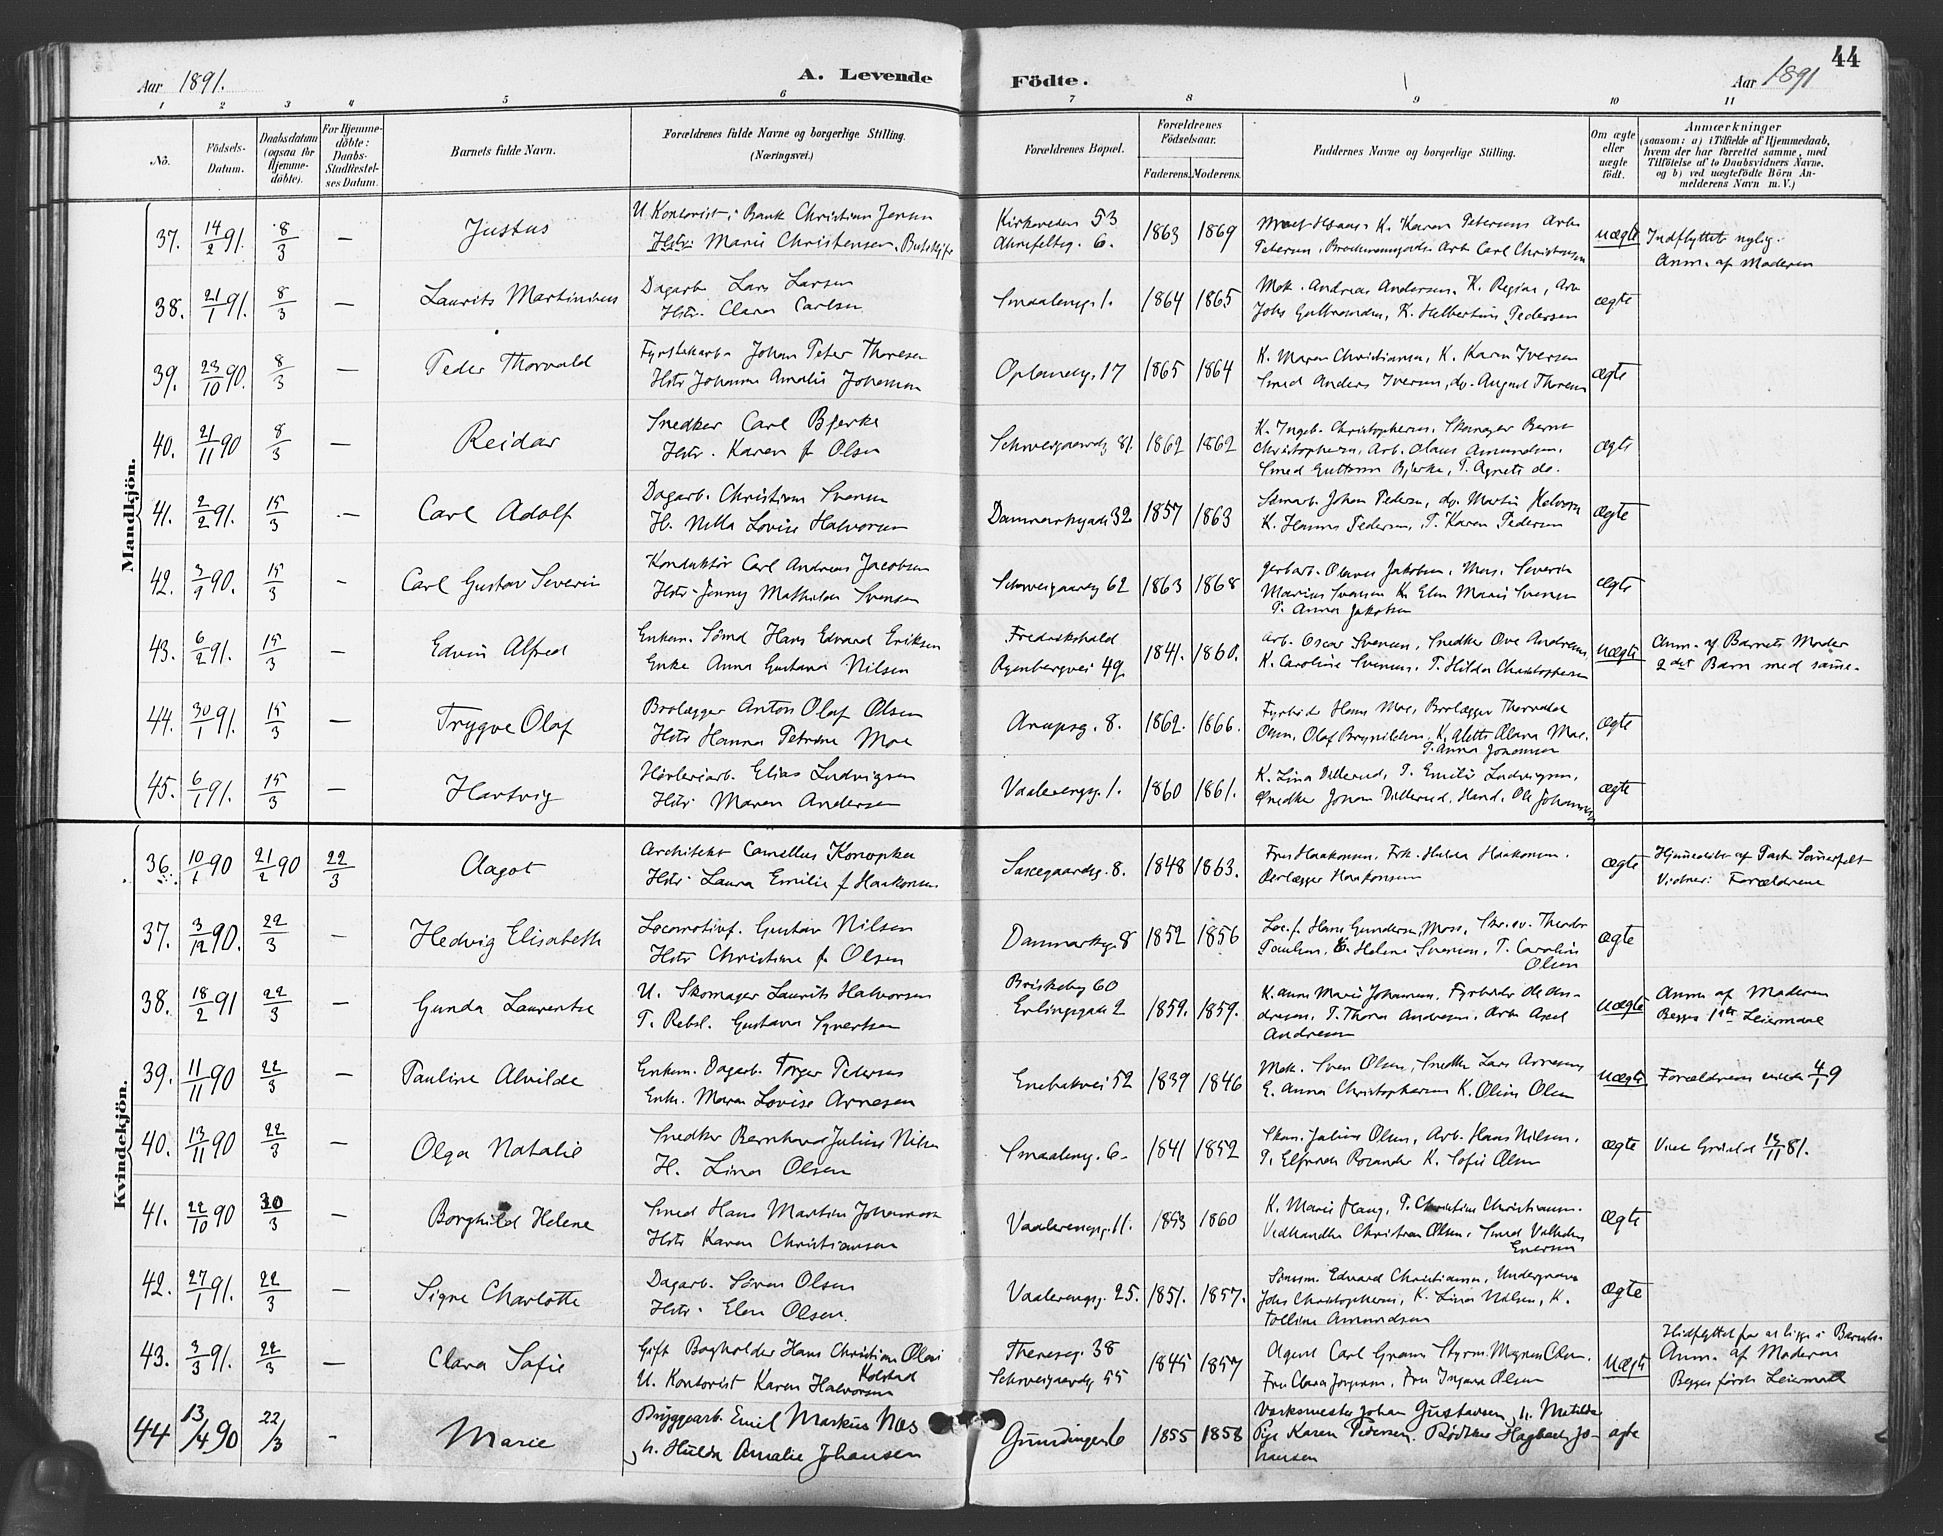 44
Aar 1891.
A. Levende Födte.
Aar 1891
1 2 3 4 5 6 7 8 9 10 11
No.
Födsels-Datum.
Daabsdatum (ogsaa for Hjemme-döbte).
For Hjemme-döbte: Daabs-Stadfæstel-ses Datum.
Barnets fulde Navn.
Forældrenes fulde Navne og borgerlige Stilling. (Næringsvei.)
Forældrenes Bopæl.
Forældrenes Födselsaar.
Faderens. Moderens.
Faddernes Navne og borgerlige Stilling.
Om ægte eller uægte födt.
Anmærkninger
(saasom: a) i Tilfælde af Hjemmedaab, hvem der har forrettet samme, med Tilföielse af to Daabsvidners Navne, og b) ved uægtefödte Börn An-melderens Navn m. V.)
Mandkjön.
37. 14/2 91. 8/3 — Justus
U. Kontorist i Bank Christian Jensen
Marie Christensen
Kirkeveien 53
6. 1863 1869
Karen Petersens Arb.
Petersen, Arb. Carl Christensen
uægte
Indflyttet nylig.
Anm. af Moderen
38. 21/1 91. 8/3 — Laurits Martinius
Dagarb. Lars Larsen
Hstr. Clara Carlsen
Smaaleneg. 1. 1864 1865
Mek. Andreas Andersen, K. Regine, Arb.
Pedersen
ægte
39. 23/10 90. 8/3 — Peder Thorvald
Johan Peter Thoresen
Hstr Johanne Amalie Johansen
Oplandg. 17 1865 1864
K. Maren Christiansen, K. Karen Iversen
Smed Anders Iversen, do. August Thoresen
ægte
40. 21/11 90 8/3 — Reidar
Snedker Carl Bjerke
Hstr. Karen f. Olsen
Schweigaardsg 81. 1862 1862
K. Ingeb. Christophersen, Skomager Bernt
Christophersen, Arb. Olaus Amundsen.
Smed Guttorm Bjerke, P. Agnete do.
ægte
41. 2/2 91. 15/3 — Carl Adolf
Dagarb. Christian Svensen
H. Lovise Halvorsen
Danmarksgade 32 1857 1863
Johan Pedersen, do. Martin
K. Hanna Pedersen, P. Karen Pedersen
ægte
42. 90. 15/3 — Carl Gustav Severin
Konduktör Carl Andreas Jacobsen
Hstr. Jenny Mathilde Svensen
Schweigaardsg 62 1863 1868
Jakobsen, Severin
Marius Svensen K. Elen Marie Svensen
P. Anna Jakobsen
ægte
43. 6/2 91. 15/3 — Edvin Alfred
Enkem. Smed Hans Edvard Eriksen
Enke Anna Gustava Nilsen
Fredrikshald
Ryenbergvei 49. 1841. 1860.
Arb. Oscar Svensen, Snedker Ove Andersen,
K. Caroline Svensen, P. Hilda Christophersen
uægte
Anm. af Barnets Moder
2det Barn med samme.
44. 30/1 91. 15/3 — Trygve Olaf
Brolægger Anton Olaf Olsen
Hstr Hanna Petrine Moe
Arupsg. 8. 1862. 1866.
Fyrböder Hans Moe, Brolægger Thorvald
Olsen, Olaf Brynildsen, K. Alette Moe.
P. Anna Johansen
ægte
45. 6/1 91. 15/3 — Hartvig
Elias Ludvigsen
Hstr. Maren Andersen
Vaalerengsg. 1. 1860 1861.
K. Lina Dillerud, P. Emilie Ludvigsen,
Snedker Johan Dillerud, Hand. Ole Johannesen
ægte
Kvindekjön.
36. 90 21/2 90 22/3 Aagot
Architekt Camillus Konopka
Hstr Laura Emilie f. Haakonsen.
8. 1848 1863.
Fru Haakonsen, Frk. Hulda Haakonsen.
Haakonsen
ægte
Hjemmedöbt af Past.
Vidner: Forældrene
37. 3/12 90. 22/3 — Hedvig Elisabeth
Locomotivf. Gustav Nilsen
Hstr Christine f. Olsen
Danmarksg. 8 1852 1856
Loc.f. Hans Gundersen, Theodor
Paulsen, Helene Svensen, P. Caroline
Olsen
ægte
38. 18/2 91 22/3 — Gunda Laurentse
U. Skomager Laurits Halvorsen
P. Rebsl. Gustava Syvertsen
Briskeby 60
Erlingsgade 2 1859. 1859.
K. Anne Marie Johansen, Fyrböder Ole An-
dresen, P. Thora Andresen, Arb. Axel
Andresen
uægte
Anm. af Moderen
Begges 1ste Leiermaal
39. 11/11 90 22/3 — Pauline Alvilde
Enkem. Dagarb. Torger Pedersen
Enke. Maren Lovise Arnesen
Enebakvei 52 1839 1846
Mek. Sven Olsen, Snedker Lars Arnesen,
E. Anna Christophersen K. Oline Olsen
uægte
Forældrene viede 4/1 9
40. 13/11 90 22/3 — Olga Natalie
Snedker Bernhard Julius Nilsen
H. Lina Olsen
Smaaleneg. 6. 1841 1852
Skom. Julius Olsen, Arb. Hans Nilsen.
P. Elfrida K. Sofie Olsen
ægte
81.
41. 22/10 90 30/3 — Borghild Helene
Smed Hans Martin Johannesen
Hstr Karen Christiansen
Vaalerengsg. 11. 1853 1860
K. Marie Haug, P. Christine Christiansen.
Vedhandler Christian Olsen, Smed Vilhelm
Enersen
ægte
42. 27/1 91. 22/3 — Signe Charlotte
Dagarb. Sören Olsen
Hstr. Elen Olsen.
Vaalerengsg. 25. 1851. 1857.
Edvard Christiansen,
Johs Christophersen, K. Lina Nilsen, K.
Amundsen
ægte
43. 3/3 91. 22/3 — Clara Sofie
Gift Bogholder Hans Christian Olai
Kolstad
U. Kontorist Karen Halvorsen
Theresesg. 38
Schweigaardsg 55 1845 1857
Agent Carl Gram, Styrm. Magnus Olsen.
Fru Clara Jörgensen, Fru Ingara Olsen
uægte
Anm. af Moderen
Begges förste Leiermaal
44 13/4 90 22/3 - Marie
Bryggearb. Emil Markus Næs
h. Hulda Amalie Johansen
6 1855 1858
Værksmester Johan Gustavsen, h. Matilde
Pige Karen Pedersen. Bödker Hagbart Jo-
hansen
ægte